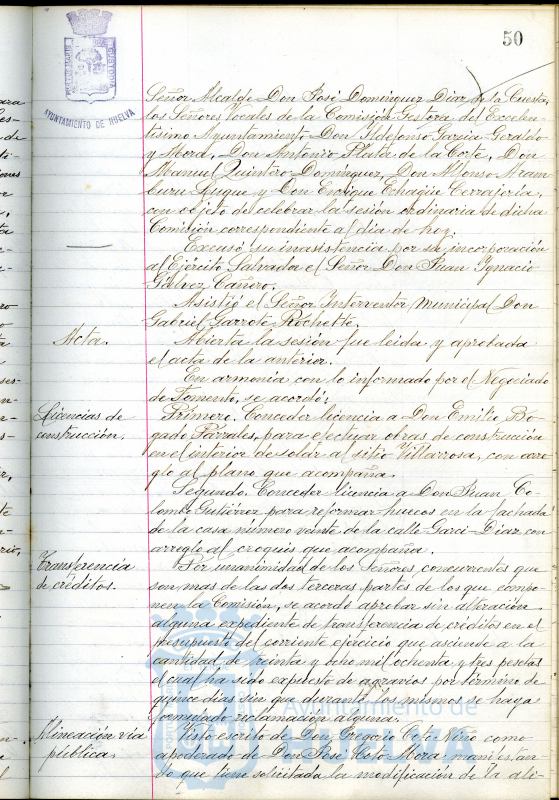 50
AYUNTAMIENTO DE HUELVA
Señor Alcalde Don José Domínguez Diaz de la Cuesta,
los Señores Vocales de la Comisión Gestora del Excelen-
tísimo Ayuntamiento Don Ildefonso García-Geraldo
y Mora, Don Antonio Plata de la Corte, Don
Manuel Quintero Domínguez, Don Alfonso Aram
buru Luque y Don Enrique Echagüe Cerrajería,
con objeto de celebrar la sesión ordinaria de dicha
Comisión correspondiente al día de hoy.
Excusó su inasistencia por su incorporación
al Ejército Salvador el Señor Don Juan Ignacio
Gálvez Cañero.
Asistió el Señor Interventor Municipal Don
Gabriel Garrote Rochette.
Acta.
Abierta la sesión fue leida y aprobada
el acta de la anterior.
En armonía con lo informado por el Negociado
de Fomento, se acordó:
Licencias de
construcción.
Primero. Conceder licencia a Don Emilio Bo-
gado Parrales, para efectuar obras de construcción
en el interior de solar al sitio Villarrosa, con arre
glo al plano que acompaña.
Segundo. Conceder licencia a Don Juan Co-
lombo Gutiérrez para reformar huecos en la fachada
de la casa número veinte de la calle Garci-Diaz con
arreglo al croquis que acompaña.
Transferencia
de créditos.
Por unanimidad de los Señores concurrentes que
son mas de las dos terceras partes de los que compo-
nen la Comisión, se acordó aprobar sin alteración
alguna expediente de transferencia de créditos en el
presupuesto del corriente ejercicio que asciende a la
cantidad de treinta y ocho mil ochenta y tres pesetas
el cual ha sido expuesto de agravios por término de
quince días sin que durante los mismos se haya
formulado reclamación alguna.
Alineación vía
pública.
Visto escrito de Don Gregorio Coto Niño como
apoderado de Don José Coto Mora manifestan-
do que tiene solicitada la modificación de la ali-
Ayuntamiento de
HUELVA